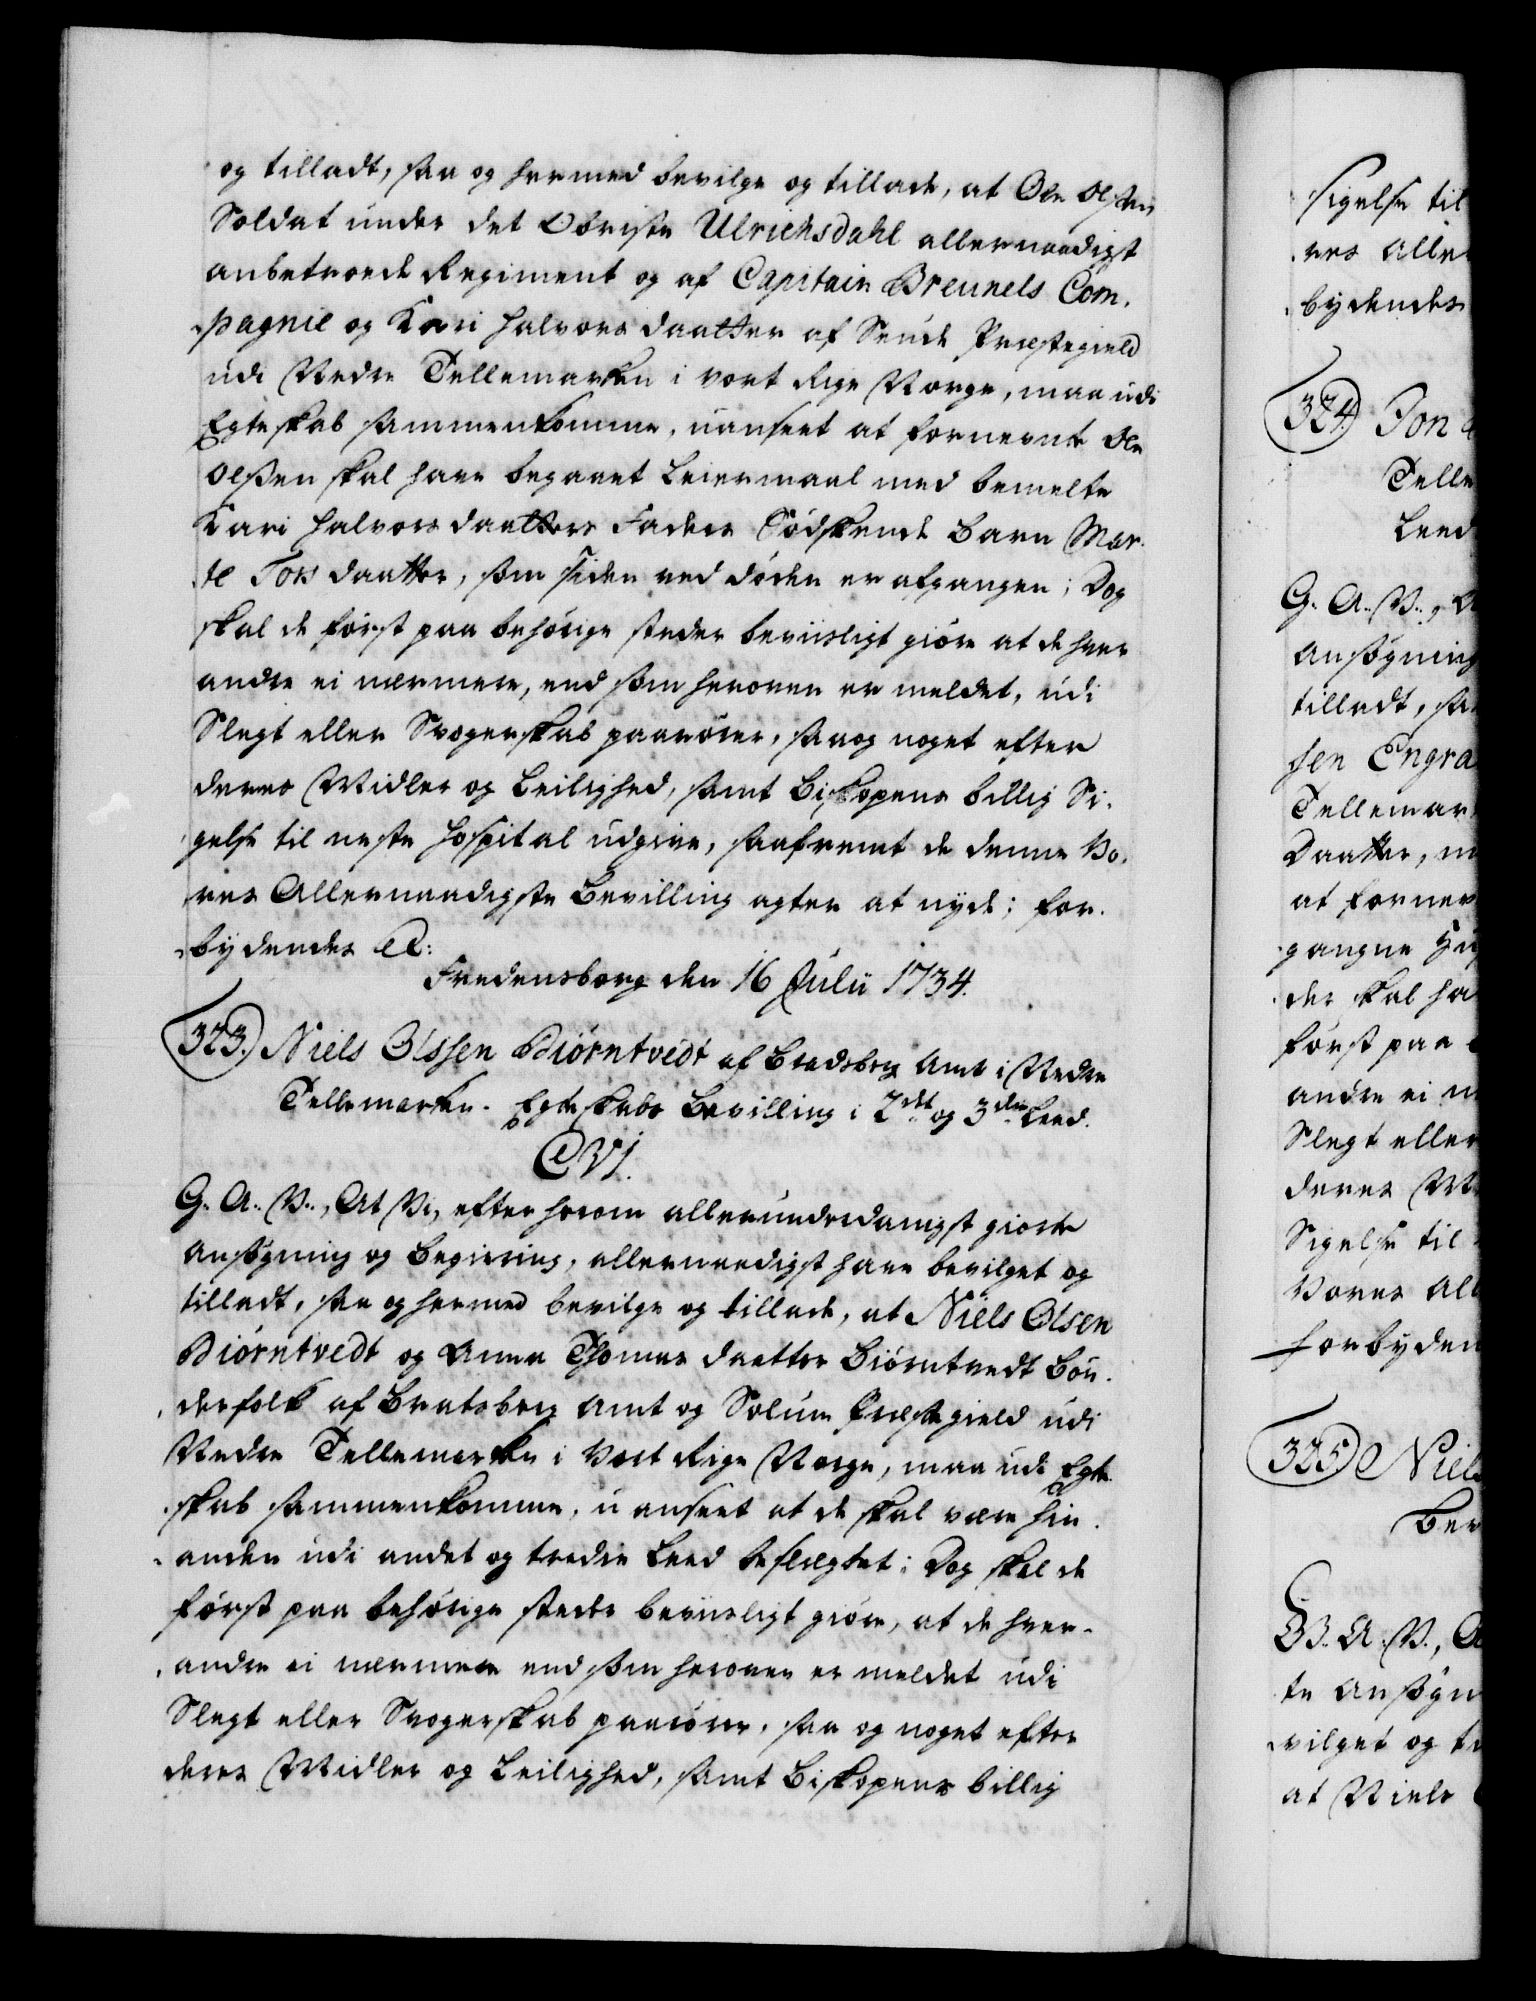 og tilladt, saa og hermed bevilge og tillade, at Ole Olssen
Soldat under det Obriste Ulrichsdahl allernaadigst
anbetroede Regiment og af Capitain Breunels Com-
pagnie og Kari Halvors daatter af Seude Præstegield
udi Nedre Tellemarken i vort Rige Norge, maa udi
Egteskab sammenkomme, uanseet at fornevnte Ole
Olssen skal have begaaet Leiermaal med bemelte
Kari Halvors daatters Faders Södskende Barn Mar-
te Tors daatter, som siden ved döden er afgangen; Dog
skal de först paa behörige steder beviisligt giöre at de hver
andre ei nærmere, end som heroven er meldet, udi
Slegt eller Svogerskab paarörer, saa og noget efter
deres Midler og Leilighed, samt Biskopens billig Si-
gelse til neste Hospital udgive, saafremt de denne Vo-
res Allernaadigste Bevilling agter at nyde; for-
bydendes etc:
Fredensborg den 16 Julii 1734.
323. Niels Olssen Biörntvedt af Bradsberg Amt i Nedre
Tellemarken. Egteskabs Bevilling i 2det og 3die Leed.
CVI.
G. A. V., At Vi, efter herom allerunderdanigst giorte
Ansögning og Begiering, allernaadigst have bevilget og
tilladt, saa og hermed bevilge og tillade, at Niels Olsen
Biörntvedt og Anna Thomas daatter Biörntvedt Bön-
derfolk af Bratsberg Amt og Solum Præstegield udi
Nedre Tellemarken i Vort Rige Norge, maa udi Egte-
skab sammenkomme, u anseet at de skal være hin-
anden udi andet og tredie Leed beslægtet; Dog skal de
först paa behörige steder beviisligt giöre, at de hver-
andre ei nærmere end som heroven er meldet udi
Slegt eller Svogerskab paarörer, saa og noget efter
deres Midler og Leilighed, samt Biskopens billig
Sigelse til
res Aller
bydendes
324. Jon
Telle
Leed
G. A. V., A
Ansögning
tilladt, sa
sen Engra
Tellemar
Daatter, m
at fornev
gangne Hu
der skal ha
först paa
andre ei n
Slegt eller
deres Mi
Sigelse til
Vores All
forbyden
325. Niels
Bev
G. A. V., A
te Ansögn
vilget og ti
at Niels